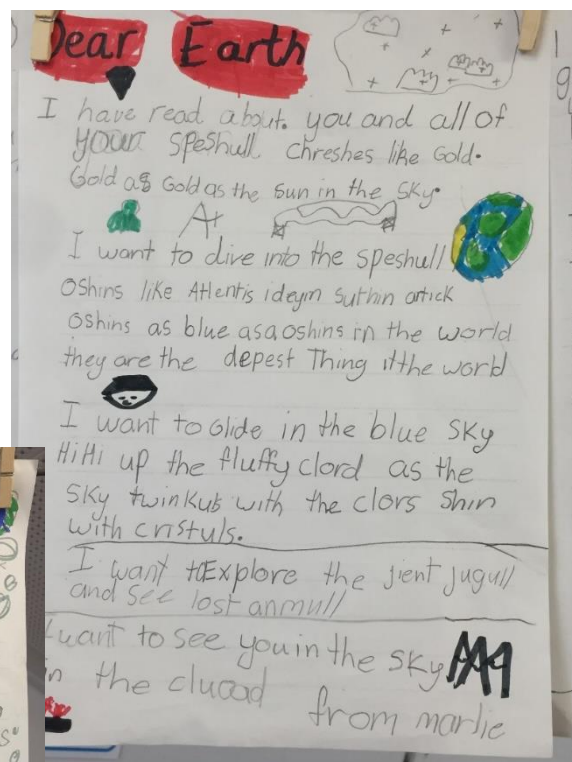 Dear Earth
I have read about. you and all of
your speshull chreshes like Gold.
Gold as Gold as the sun in the sky.
A+
I want to dive into the speshull
Oshins like Atlentis ideyin suthin artick
Oshins as blue asaoshins in the world
they are the depest Thing itthe world
I want to Glide in the blue sky
HiHi up the fluffy clord as the
sky twinkuls with the clors Shin
with cristuls.
I want toExplore the jient jugull
and see lost anmull
I want to see you in the sky
in the clucad
from marlie